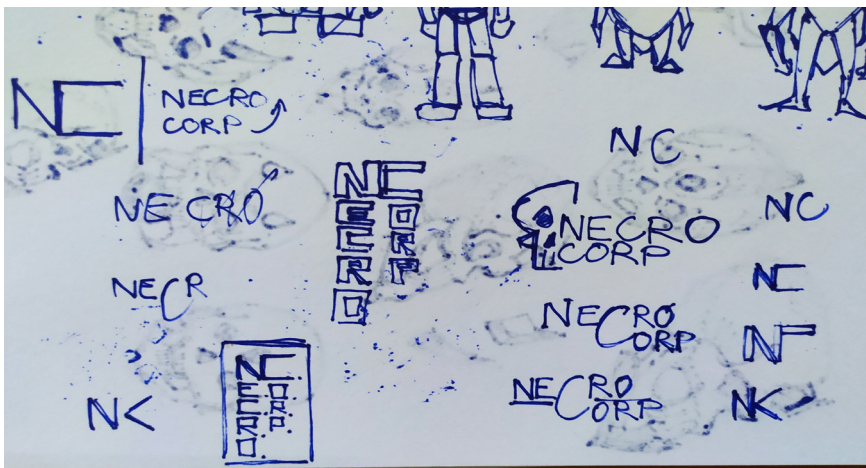 NC
NECRO
CORP
NECRO
NECR
N<
NC
NECRO
ORP
NC
NECRO
ORP
NC
NECRO
CORP
NECRO
ORP
NECRO
ORP
NC
NC
NK